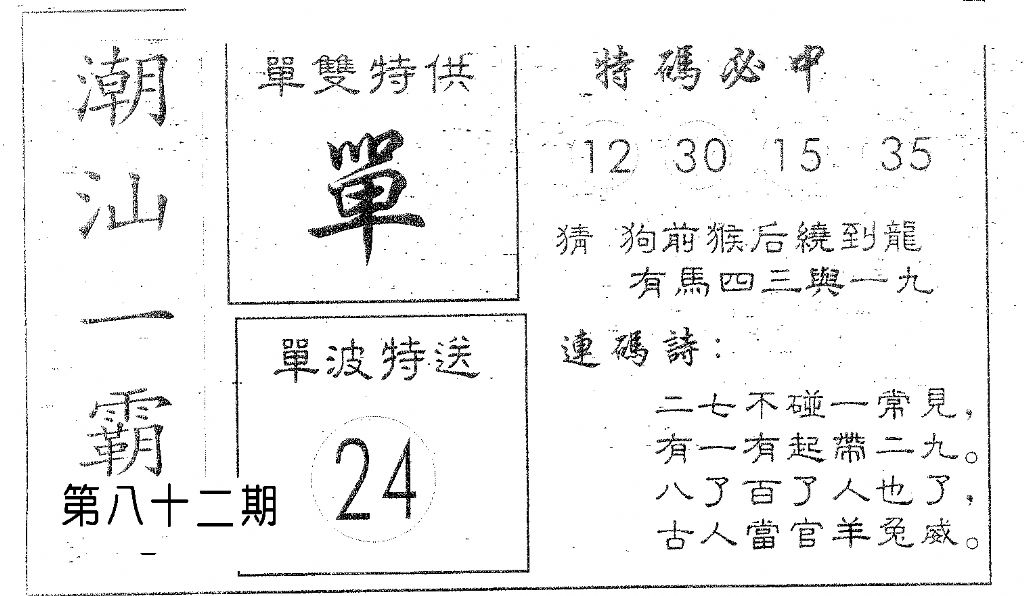 潮汕一霸
第八十二期
單雙特供
單
單波特送
24
特碼必中
12 30 15 35
猜 狗前猴后繞到龍
有馬四三與一九
連碼詩：
二七不碰一常見，
有一有起帶二九。
八了百了人也了，
古人當官羊兔威。